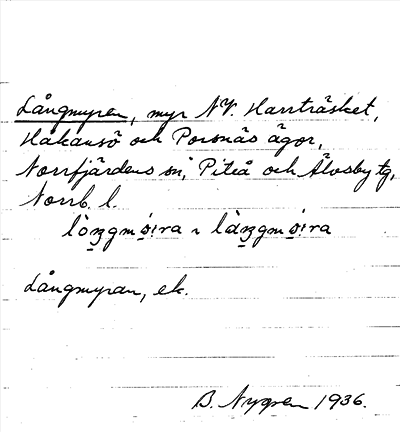 Långmyren, myr NV. Harrträsket,
Håkansö och Porsnäs ägor,
Norrfjärdens sn, Piteå och Älvsby tg,
Norrb. l.
Långmyran, ek.
B. Nygren 1936.